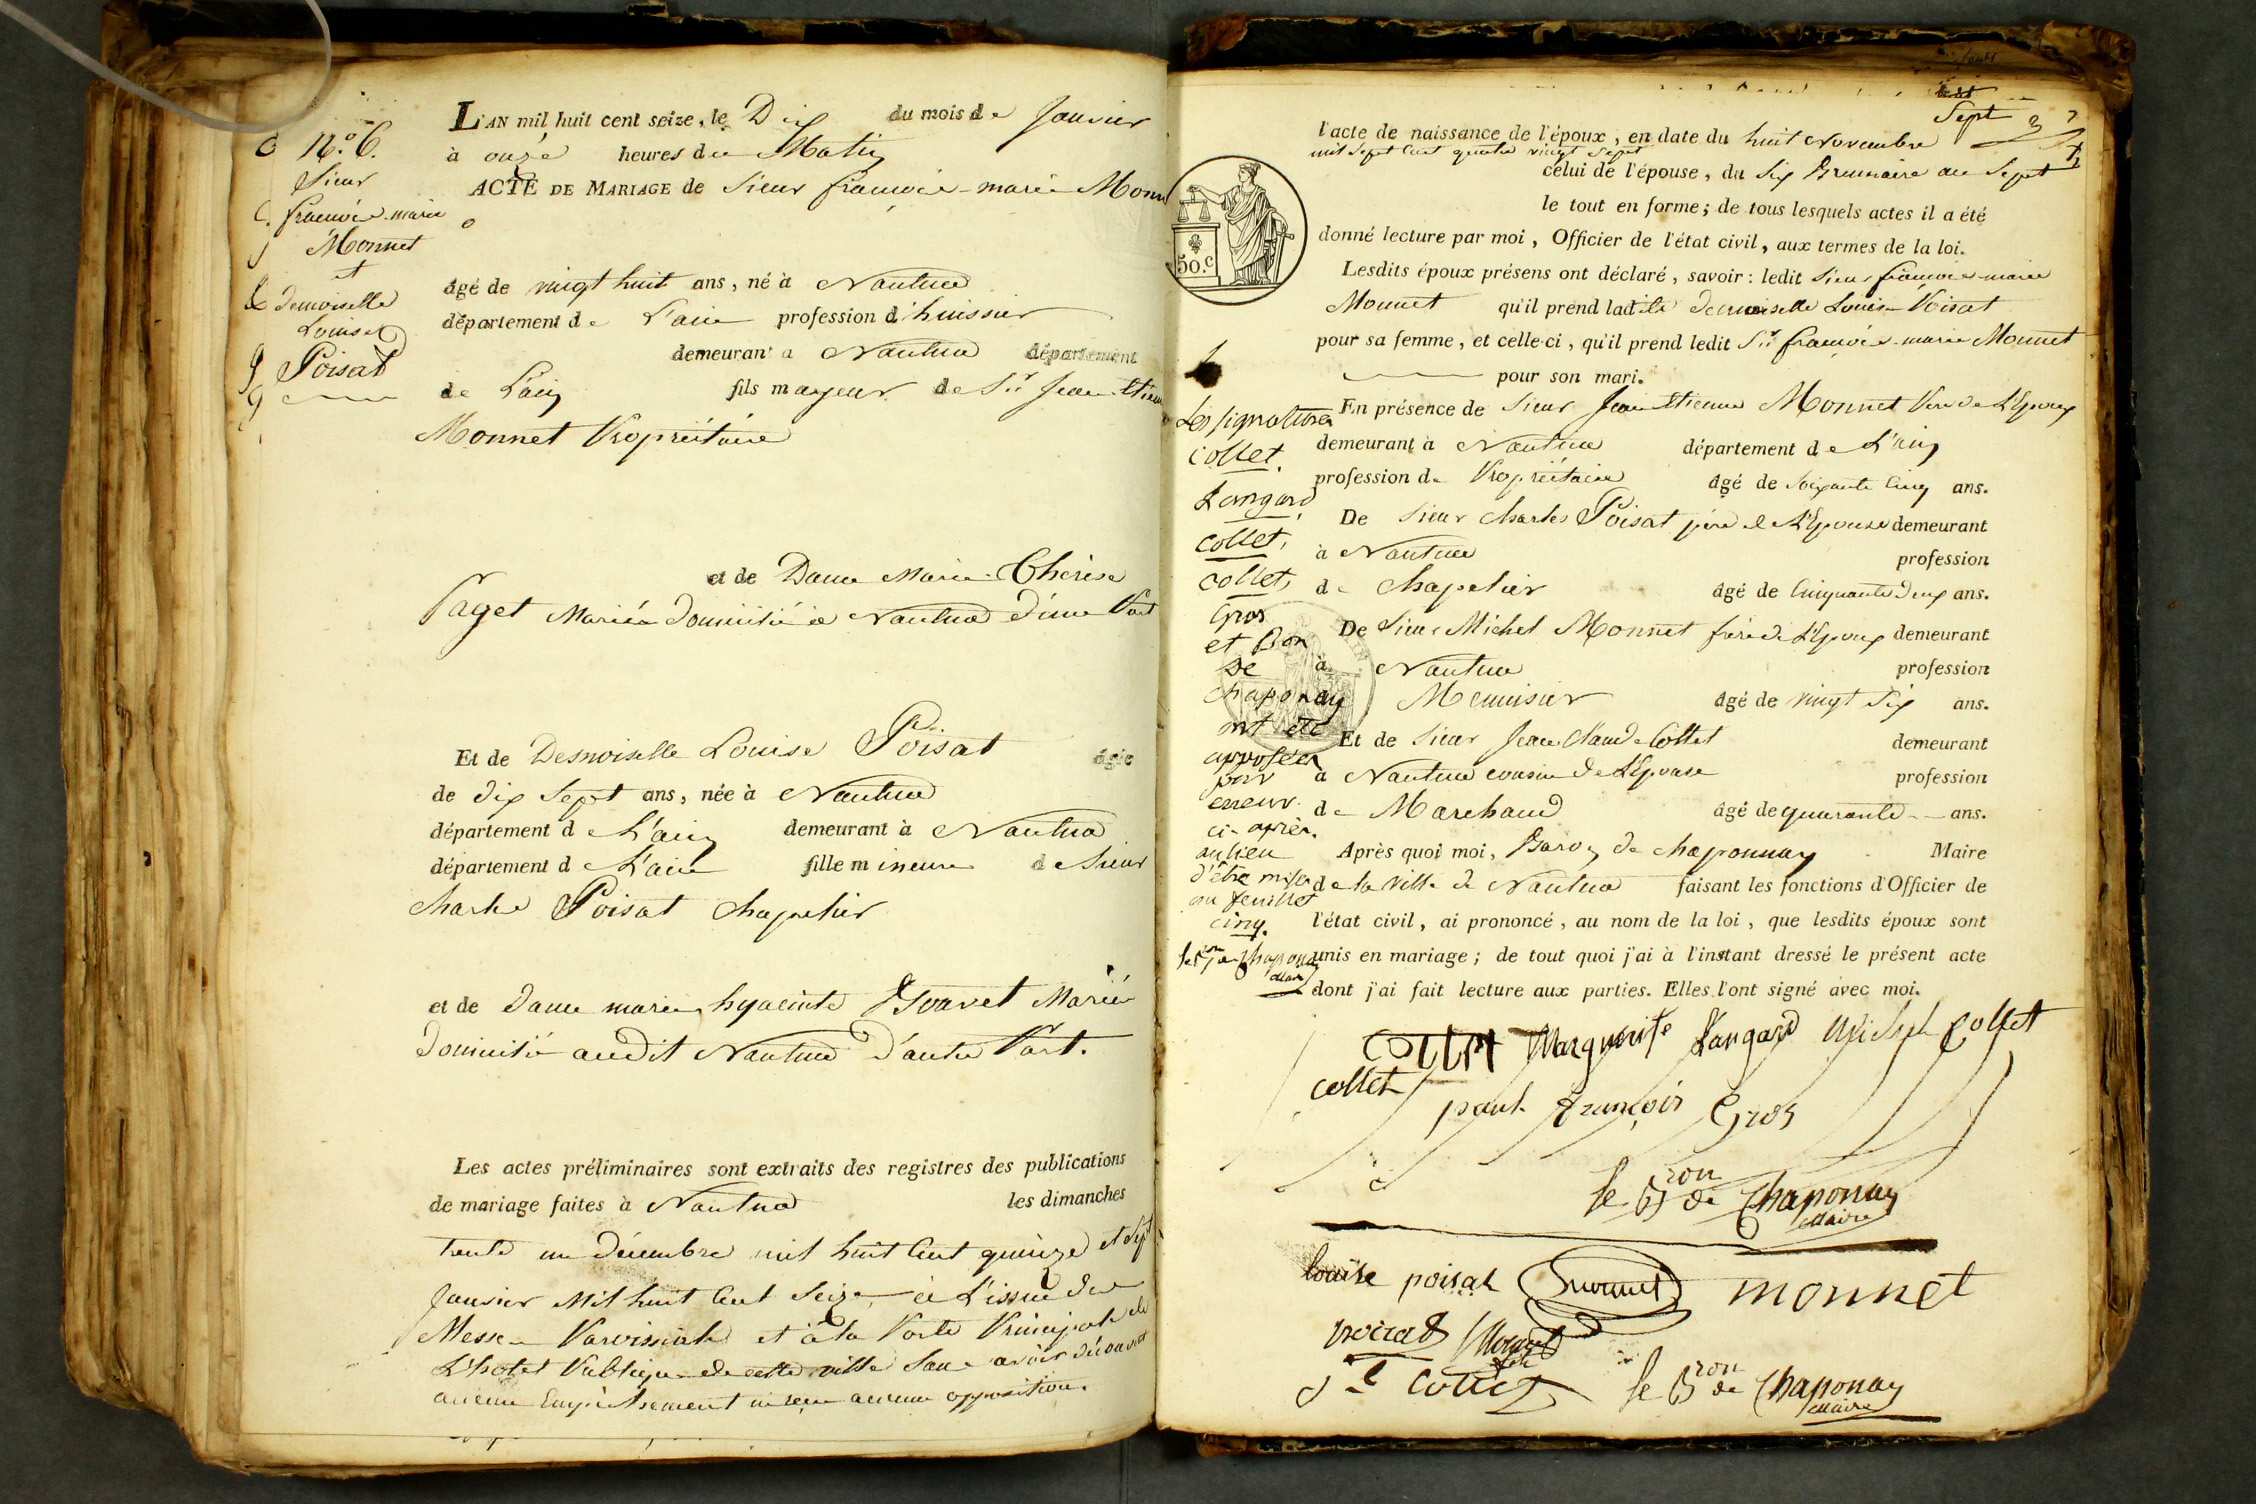 N.o 6.
Sieur
françois-marie
Monnet
et
demoiselle
Louise
Poisat
L'AN mil huit cent seize, le Dix du mois de Janvier
à onze heures du Matin
ACTE DE MARIAGE de Sieur françois-marie Monn
âgé de vingt huit ans, né à Nantua
département de L'ain profession d'huissier
demeurant a Nantua département
de L'ain fils majeur de Sr. Jean Etienne
Monnet Propriétaire
et de Dame Marie-Thérèse
Paget Mariée domicilié à Nantua d'une Part
Et de Demoiselle Louise Poisat âgée
de dix Sept ans, née à Nantua
département de L'ain demeurant à Nantua
département de L'ain fille mineure de Sieur
Charles Poisat chapelier
et de Dame marie hyacinte Mariée
domicilié audit Nantua d'autre Part.
Les actes préliminaires sont extraits des registres des publications
de mariage faites à Nantua les dimanches
trente un décembre mil huit Cent quinze et Sept
Janvier Mil huit Cent Seize, à L'issue de
Messe Paroissiale et à la Porte Principale de
L'hotel Publique de cette ville Sans avoir découvert
aucun Empêchement ni reçu aucune opposition.
Sept
l'acte de naissance de l'époux, en date du huit Novembre
mil Sept Cent quatre vingt Sept
celui de l'épouse, du Six Brumaire an Sept
le tout en forme; de tous lesquels actes il a été
donné lecture par moi, Officier de l'état civil, aux termes de la loi.
50.c
Lesdits époux présens ont déclaré, savoir: ledit Sieur françois-marie
Monnet qu'il prend ladite demoiselle Louise Poisat
pour sa femme, et celle-ci, qu'il prend ledit Sr. françois-marie Monnet
pour son mari.
En présence de Sieur Jean Etienne Monnet Père de L'Epoux
demeurant à Nantua département de L'ain
profession de Propriétaire âgé de Soixante Cinq ans.
De Sieur Charles Poisat père de L'Epouse demeurant
à Nantua profession
de Chapelier âgé de Cinquante Deux ans.
De Sieur Michel Monnet frère de L'Epoux demeurant
à Nantua profession
Menuisier âgé de vingt Six ans.
Et de Sieur Jean Claude Collet demeurant
à Nantua cousin de L'Epouse profession
de Marchand âgé de quarante ans.
Après quoi moi, Baron de Chaponnay Maire
de la Ville de Nantua faisant les fonctions d'Officier de
l'état civil, ai prononcé, au nom de la loi, que lesdits époux sont
unis en mariage; de tout quoi j'ai à l'instant dressé le présent acte
dont j'ai fait lecture aux parties. Elles l'ont signé avec moi.
Les signatures
collet.
Langard
collet,
collet,
Gros
et Bon
De
chaponay
ont été
apposées
par
erreur
ci-après.
au lieu
d'être mises
au feuillet
cinq.
le Bon de Chaponay
Maire
collet Marguerite Langard Michel Collet
collet
paul françois Gros
le Bron de Chaponay
Maire
louise poisat Monnet
poisat Monnet
collet le Bron de Chaponay
Maire